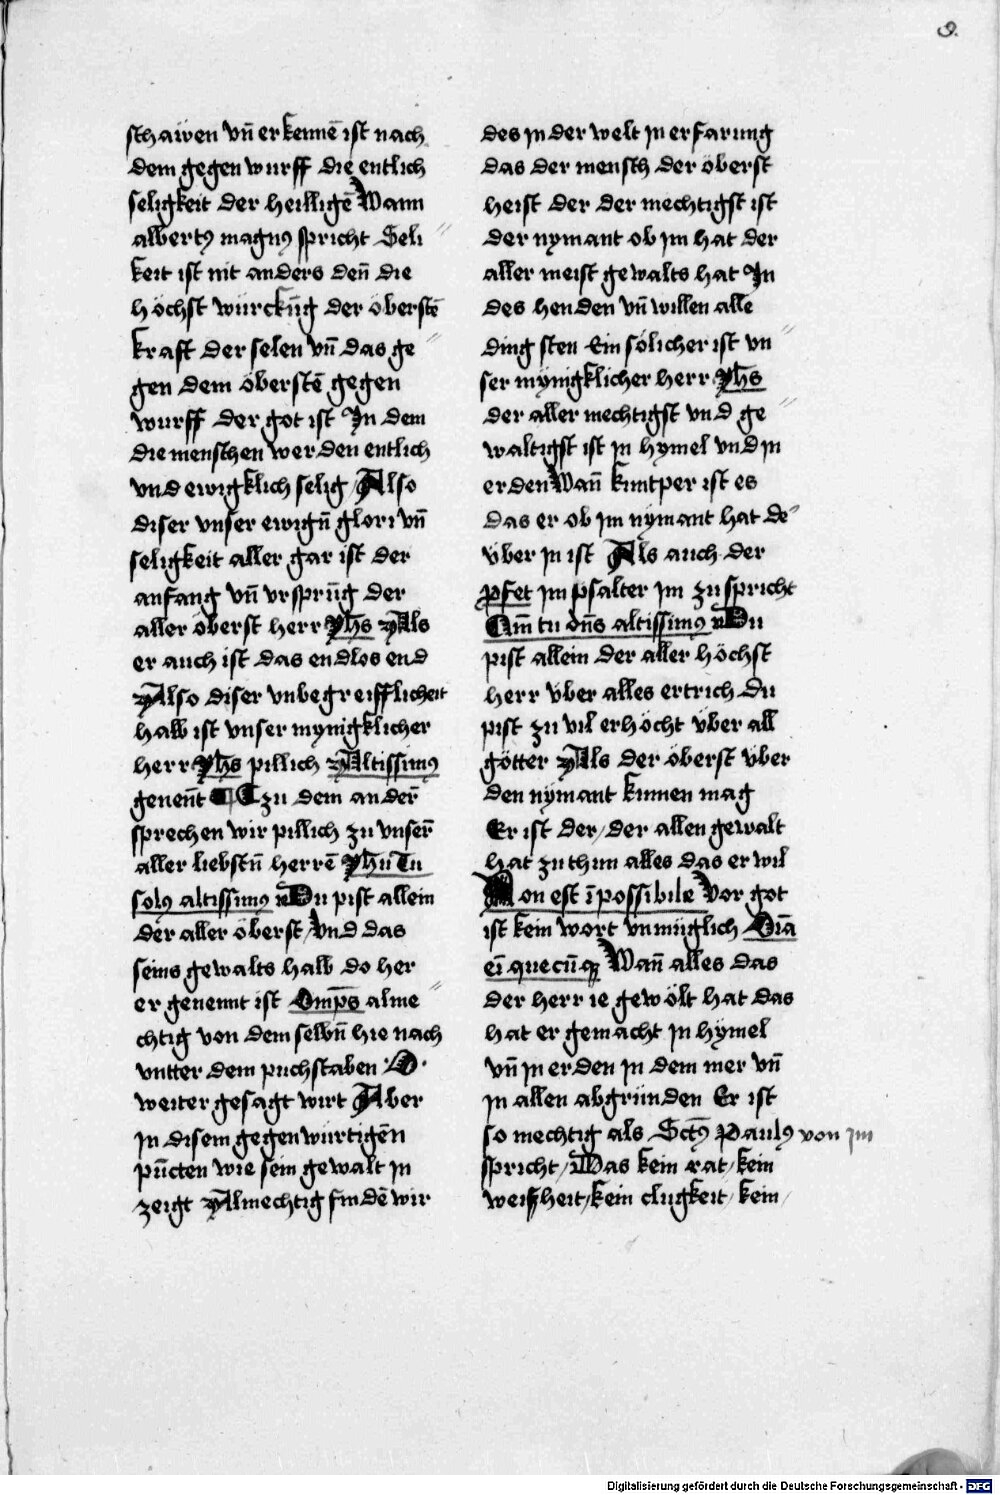 9.
schawen vnd̄ erkennē ist nach
dem gegenwurff die entlich
seligkeit der heilligē Wann
albertꝰ magnꝰ spricht Seli
keit ist nit anders den̄ die
höchst würckūg der öberstē
kraft der selen vn̄ das ge
gen dem öberstē gegen
wurff der got ist Jn dem
die menschen werden entlich
vnd ewigklich selig / Also
diser vnser ewign̄ glori vn̄
seligkeit aller gar ist der
anfang vn̄ vrsprūg der
aller öberst herr Yhs Als
er auch ist das endlos end
Also diser vnbegreifflicheit
halb ist vnser mynigklicher
herr Yhs pillich Altissimꝰ
genen̄t ¶ Czu dem ander̄
sprechen wir pillich zu vnser̄
aller liebstn̄ herrē Yhu Tu
solꝰ altissimꝰ Du pist allein
der aller öberst / vnd das
seins gewalts halb do her
er genennt ist Omp̄s alme
chtig von dem selbn̄ hie nach
vntter dem puchstaben ·O·
weiter gesagt wirt Aber
jn disem gegenwürtigēn
pūcten wie sein gewalt in
zeigt Almechtig findē wir
des jn der welt jn erfarung
das der mensch der öberst
heist der der mechtigst ist
der nymant ob jm hat der
aller meist gewalts hat Jn
des henden vn̄ willen alle
ding sten Ein sölicher ist vn
ser mynigklicher herr Yhs
der aller mechtigst vnd ge
waltigst ist jn hymel vnd jn
erden Wan̄ kuntper ist es
das er ob jm nymant hat de
über jn ist Als auch der
pfet im psalter jm zu spricht
Qm̄ tu dn̄s altissimꝰ Du
pist allein der aller höchst
herr über alles ertrich du
pist zu vil erhöcht über all
götter Als der öberst über
den nymant kumen mag
Er ist der / der allen gewalt
hat zu thun alles das er wil
Non est īpossibile Vor got
ist kein wort vnmüglich Oīa
eī quecūqꝫ Wan̄ alles das
der herr ie gewölt hat das
hat er gemacht jn hymel
vn̄ jn erden jn dem mer vn̄
jn allen abgründen Er ist
so mechtig als Sctꝰ Paulꝰ von jm
spricht / Das kein rat / kein
weisheit / kein clugkeit / kein /
Digitalisierung gefördert durch die Deutsche Forschungsgemeinschaft - DFG